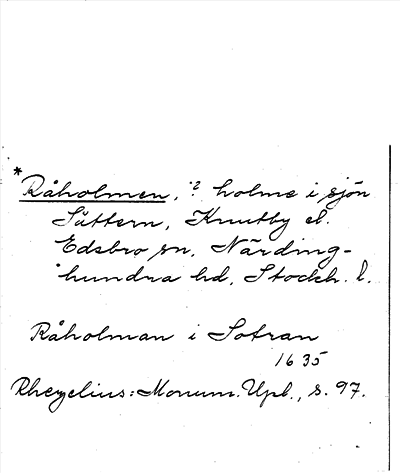 *Råholmen, ? holme i sjön
Sättern, Knutby el.
Edsbro sn, Närding-
hundra hd, Stockh. l.
Råholman i Sotran
1635
Rhezelius: Monum. Upl., s. 97.